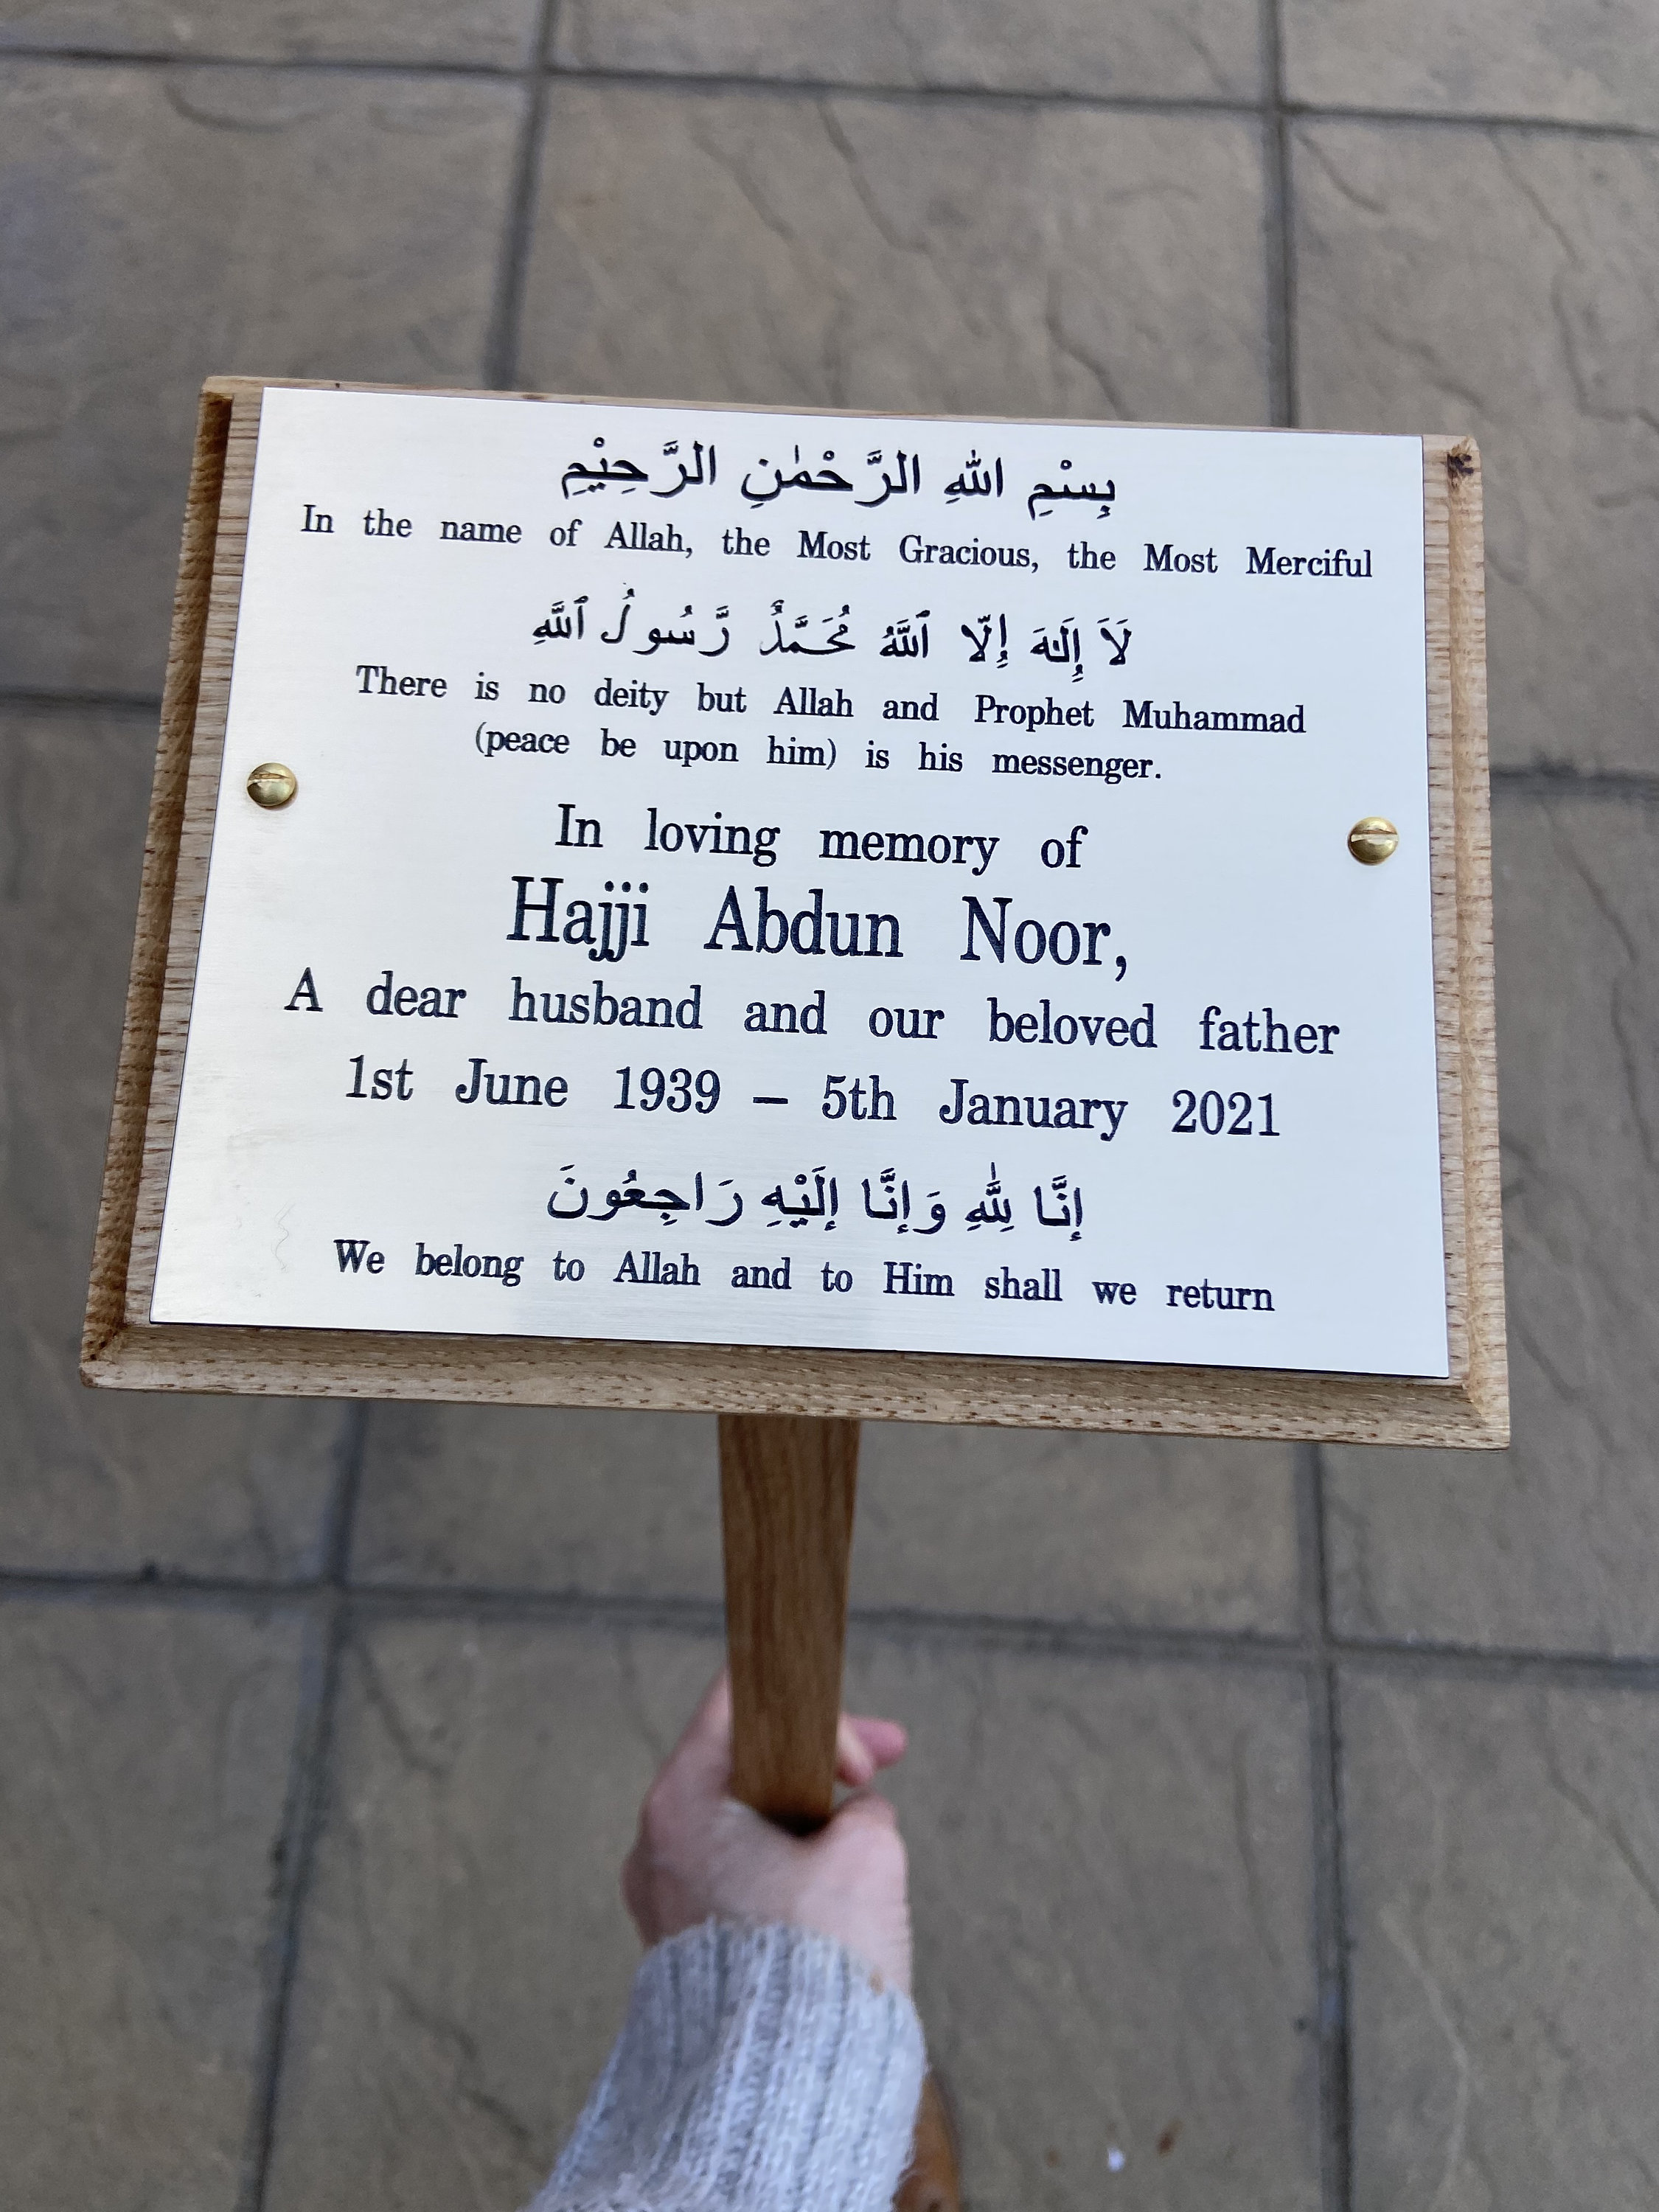 بِسْمِ اللهِ الرَّحْمٰنِ الرَّحِيْمِ
In the name of Allah, the Most Gracious, the Most Merciful
لَا إِلَٰهَ إِلَّا ٱللَّهُ مُحَمَّدٌ رَّسُولُ ٱللَّهِ
There is no deity but Allah and Prophet Muhammad
(peace be upon him) is his messenger.
In loving memory of
Hajji Abdun Noor,
A dear husband and our beloved father
1st June 1939 – 5th January 2021
إِنَّا لِلَّٰهِ وَإِنَّا إِلَيْهِ رَاجِعُونَ
We belong to Allah and to Him shall we return